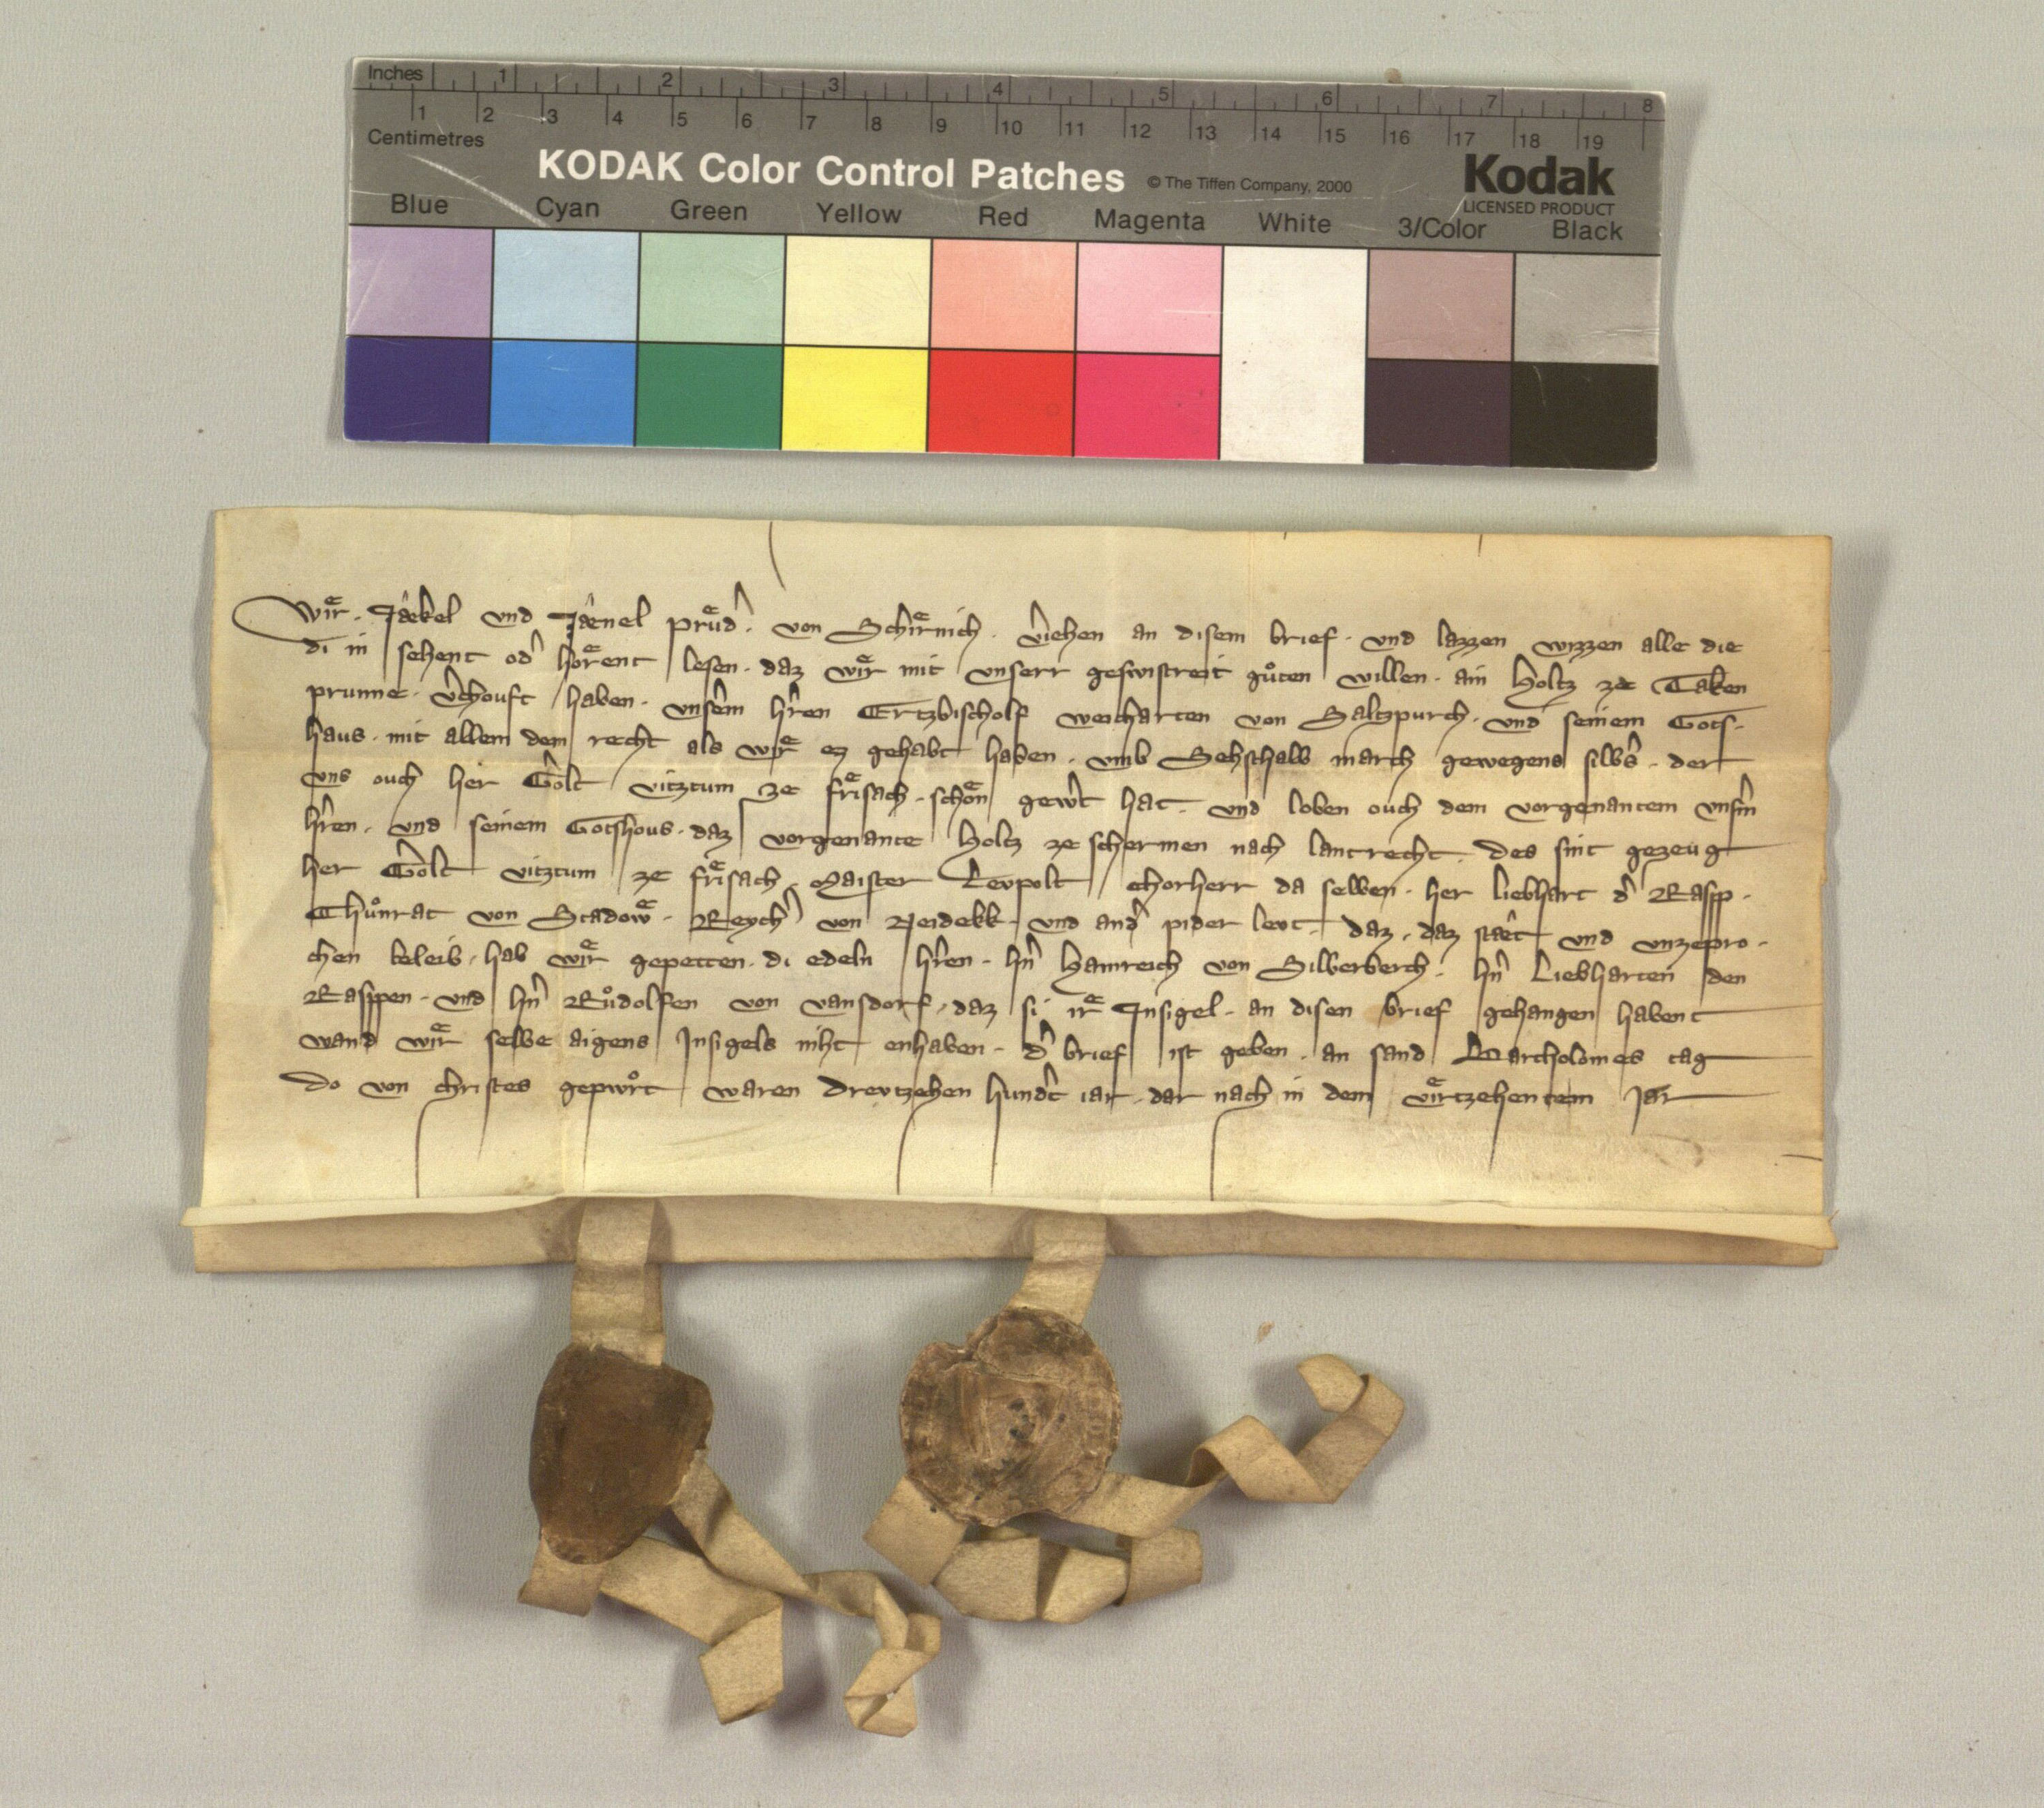 Inches 1 2 3 4 5 6 7 8
1 2 3 4 5 6 7 8 9 10 11 12 13 14 15 16 17 18 19
Centimetres
KODAK Color Control Patches © The Tiffen Company, 2000 Kodak
LICENSED PRODUCT
Blue Cyan Green Yellow Red Magenta White 3/Color Black
Wiͤr . Jaͤkel vnd Jaͤnel pruͤd' . von Schiͤrnich . v'iehen an disem brief . vnd lazzen wizzen alle die
di in sehent od' hoͤrent lesen . daz wiͤr mit vnserr geswistreit guͦten willen . ain Holtz ze Taken
prunne . v'chouft haben . vns'm h'ren Ertzbischolf weicharten von Saltzpurch . vnd seinem Gots-
haus . mit allem dem recht als wiͤr ez gehabt haben . vmb Sehschalb march gewegens silb's . der
vns ouch her Goͤlt vitztum ze friͤsach . schoͤn gew't hat . vnd loben ouch dem vorgenantem vns'm
h'ren . vnd seinem Gotshous . daz vorgenante Holtz ze schermen nach lantrecht . des sint gezeug
her Goͤlt vitztum ze friͤsach . Maister Levpolt chorherr da selben . her liebhart d' Rassp .
Chuͦnrat von Stadowͤ . Reych' von Neidekk . vnd and' pider levt . daz . daz staͤt vnd vnzepro .
chen beleib . hab wiͤr gepetten . di edeln h'ren . h'n Hainreich von Silberberch . h'n Liebharten den
Rasppen . vnd h'n Ruͦdolfen von vansdorf . daz si irͤ Insigel . an disen brief gehangen habent
wand wiͤr selbe aigens Insigels niht enhaben . d' brief ist geben . an sand Bartholomes tag
do von christes gepuͦrt waren Drevtzehen hund't iar . dar nach in dem viͤrtzehentem Jar